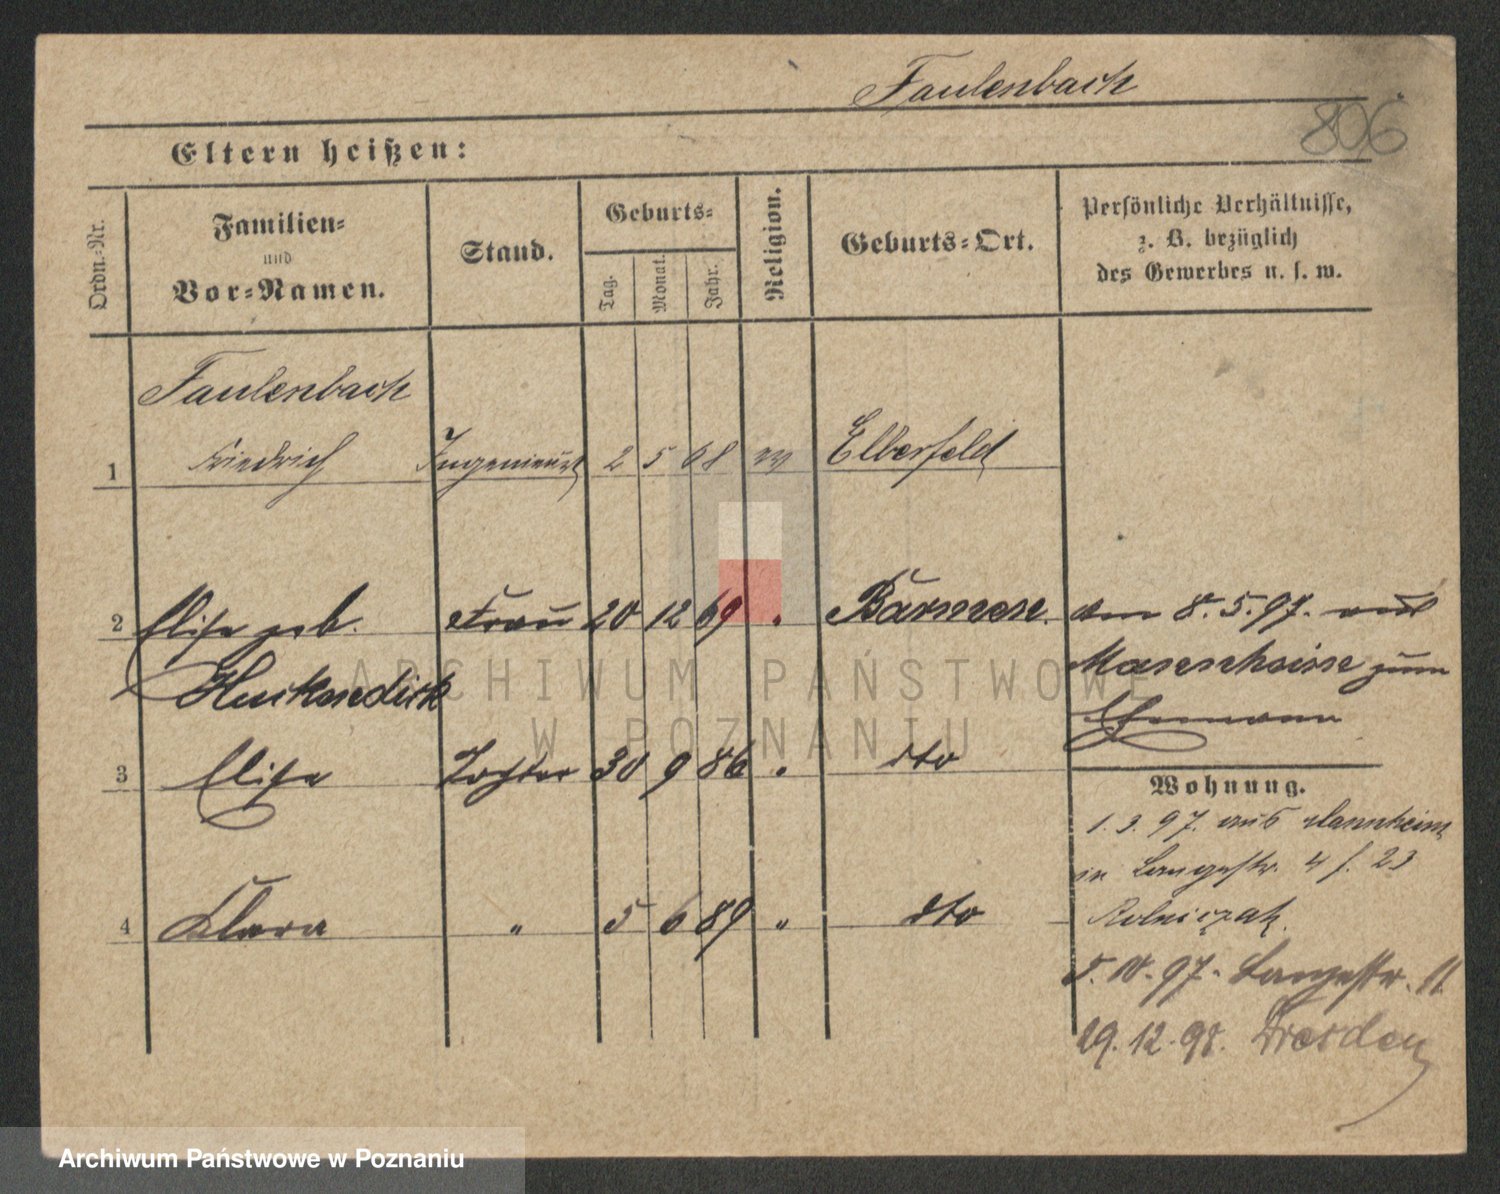 Faulenbach
806
Eltern heißen:
Ordn.-Nr.
Familien-
und
Vor-Namen.
Stand.
Geburts-
Tag.
Monat.
Jahr.
Religion.
Geburts-Ort.
Persönliche Verhältnisse,
z. B. bezüglich
des Gewerbes u. s. w.
Faulenbach
1 Friedrich Ingenieur 2 5 68 ev Elberfeld
2 Elise geb. Frau 20 12 69 " Barmen. am 8.5.97. aus
zum
Ehemann
3 Elise Tochter 30 9 86 " dto
Wohnung.
1.3.97. aus Mannheim
in Langestr. 4 f. 23
4 Klara " 5 6 89 " dto
5.10.97. Langestr. 11.
29.12.98. Dresden
ARCHIWUM PAŃSTWOWE
W POZNANIU
Archiwum Państwowe w Poznaniu